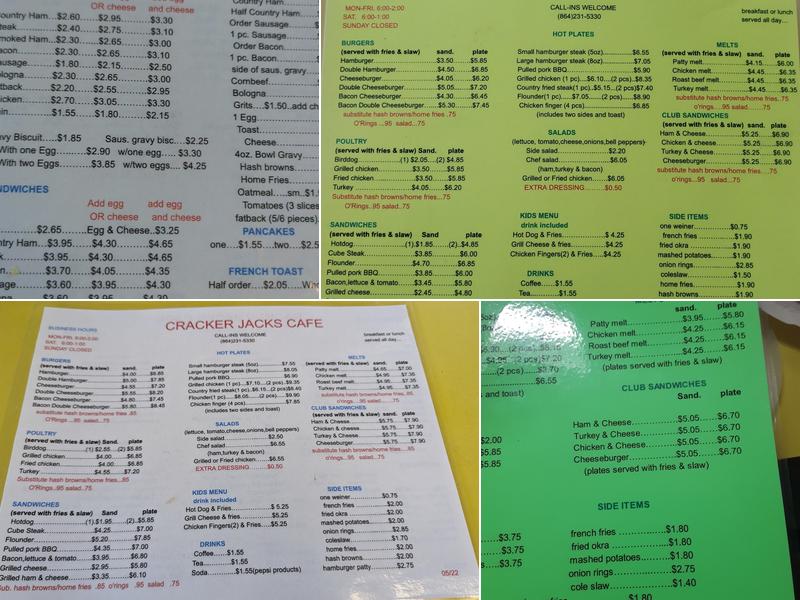 OR cheese and cheese
ountry Ham...$2.60.......$2.95..........$3.30
teak..........$2.40.......$2.75..........$3.10
moked Ham...$2.30.......$2.65........$3.00
acon.........$2.30.......$2.65........$3.10
ausage......$1.80.......$2.15........$2.50
ologna.......$2.30......$2.65........$3.00
atback.......$2.20......$2.55........$2.95
icken........$2.70......$3.05........$3.30
in...........$1.55......$1.80........$2.15
vy Biscuit....$1.85 Saus. gravy bisc...$2.25
With one Egg.......$2.90 w/one egg.... $3.30
With two Eggs........$3.85 w/two eggs.... $4.25
NDWICHES
Add egg add egg
OR cheese and cheese
.......$2.65........Egg & Cheese..$3.25
ntry Ham...$3.95......$4.30......$4.65
k..........$3.95......$4.30......$4.65
n..........$3.70......$4.05......$4.35
age........$3.60......$3.95......$4.30
Country Ham
Half Country Ham
Order Sausage
1 pc. Sausage
Order Bacon
1 pc. Bacon
side of saus. gravy
Combeef
Bologna
Grits....$1.50..add ch
1 Egg
Toast
Cheese
4oz. Bowl Gravy
Hash browns
Home Fries
Oatmeal....sm..$1.
Tomatoes (3 slices
fatback (5/6 pieces)
PANCAKES
one....$1.55....two....$2.5
FRENCH TOAST
Half order....$2.05
MON-FRI. 6:00-2:00
SAT. 6:00-1:00
SUNDAY CLOSED
CALL-INS WELCOME
(864)231-5330
breakfast or lunch
served all day....
BURGERS
(served with fries & slaw) sand. plate
Hamburger.............$3.50......$5.85
Double Hamburger......$4.50......$6.85
Cheeseburger..........$4.05......$6.20
Double Cheeseburger...$5.05......$7.20
Bacon Cheeseburger....$4.30......$6.45
Bacon Double Cheeseburger..$5.30....$7.45
substitute hash browns/home fries .75
O'Rings ..95 salad...75
POULTRY
(served with fries & slaw) Sand. plate
Birddog..............(1) $2.05...(2) $4.85
Grilled chicken.......$3.50......$5.85
Fried chicken.........$3.50......$5.85
Turkey................$4.05......$6.20
Substitute hash browns/home fries..75
O'Rings...95 salad...75
SANDWICHES
(served with fries & slaw) Sand plate
Hotdog...............(1).$1.85...(2)..$4.85
Cube Steak............$3.85......$6.00
Flounder..............$4.70......$6.85
Pulled pork BBQ.......$3.85......$6.00
Bacon,lettuce & tomato....$3.45......$5.80
Grilled cheese........$2.45......$4.80
HOT PLATES
Small hamburger steak (5oz)........$6.55
Large hamburger steak (8oz)........$7.05
Pulled pork BBQ....................$5.90
Grilled chicken (1 pc)...$6.10...(2 pcs)..$8.35
Country fried steak(1 pc)..$5.15...(2 pcs)$7.40
Flounder(1 pc)......$7.05......(2 pcs)...$8.90
Chicken finger (4 pcs)..............$6.85
(includes two sides and toast)
SALADS
(lettuce, tomato,cheese,onions,bell peppers)
Side salad.............$2.20
Chef salad.............$6.05
(ham,turkey & bacon)
Grilled or Fried chicken.......$6.05
EXTRA DRESSING.........$0.50
KIDS MENU
drink included
Hot Dog & Fries........$ 4.25
Grill Cheese & fries...$4.25
Chicken Fingers(2) & Fries....$4.25
DRINKS
Coffee......$1.55
Tea.........$1.55
MELTS
sand. plate
Patty melt............$4.15......$6.00
Chicken melt..........$4.45......$6.35
Roast beef melt.......$4.45......$6.35
Turkey melt...........$4.45......$6.35
substitute hash browns/home fries..75
o'rings...95 salad...75
CLUB SANDWICHES
Ham & Cheese..........$5.25....$6.90
Chicken & cheese......$5.25....$6.90
Turkey & Cheese.......$5.25....$6.90
Cheeseburger..........$5.25....$6.90
substitute hash browns/home fries..75
o'rings...95 salad...75
SIDE ITEMS
one weiner............$0.75
french fries..........$1.90
fried okra............$1.90
mashed potatoes.......$1.90
onion rings...........$2.85
coleslaw..............$1.50
home fries............$1.90
hash browns...........$1.90
BUSINESS HOURS
MON-FRI. 6:00-2:00
SAT. 6:00-1:00
SUNDAY CLOSED
CRACKER JACKS CAFE
CALL-INS WELCOME
(864)231-5330
breakfast or lunch
served all day....
BURGERS
(served with fries & slaw) sand. plate
Hamburger.............$4.00......$5.85
Double Hamburger......$5.00......$7.85
Cheeseburger..........$4.55......$7.20
Double Cheeseburger...$5.55......$8.20
Bacon Cheeseburger....$4.80......$7.45
Bacon Double Cheeseburger..$5.80....$8.45
substitute hash browns/home fries .85
O'Rings ..95 salad..75
POULTRY
(served with fries & slaw) Sand. plate
Birddog..............(1) $2.55...(2) $5.85
Grilled chicken.......$4.00......$6.85
Fried chicken.........$4.00......$6.85
Turkey................$4.55......$7.20
Substitute hash browns/home fries...85
O'Rings...95 salad..75
SANDWICHES
(served with fries & slaw) Sand plate
Hotdog...............(1).$1.95...(2)..$5.85
Cube Steak............$4.25......$7.00
Flounder..............$5.20......$7.85
Pulled pork BBQ.......$4.35......$7.00
Bacon,lettuce & tomato....$3.95......$6.80
Grilled cheese........$2.95......$5.80
Grilled ham & cheese..$3.35......$6.10
Sub. hash browns/home fries .85 o'rings .95 salad .75
HOT PLATES
Small hamburger steak (5oz)........$7.55
Large hamburger steak (8oz)........$8.05
Pulled pork BBQ....................$6.90
Grilled chicken (1 pc)...$7.10...(2 pcs)..$9.35
Country fried steak(1 pc)..$6.15...(2 pcs)$8.40
Flounder(1 pc)......$8.05......(2 pc)...$9.90
Chicken finger (4 pcs)..............$7.85
(includes two sides and toast)
SALADS
(lettuce, tomato,cheese,onions,bell peppers)
Side salad.............$2.50
Chef salad.............$6.55
(ham,turkey & bacon)
Grilled or Fried chicken.......$6.55
EXTRA DRESSING.........$0.50
KIDS MENU
drink included
Hot Dog & Fries........$ 5.25
Grill Cheese & fries...$5.25
Chicken Fingers(2) & Fries....$5.25
DRINKS
Coffee......$1.55
Tea.........$1.55
Soda........$1.55(pepsi products)
MELTS
sand. plate
Patty melt............$4.65......$7.00
Chicken melt..........$4.95......$7.35
Roast beef melt.......$4.95......$7.35
Turkey melt...........$4.95......$7.35
substitute hash browns/home fries..85
o'rings...95 salad...75
CLUB SANDWICHES
Ham & Cheese..........$5.75....$7.90
Chicken & cheese......$5.75....$7.90
Turkey & Cheese.......$5.75....$7.90
Cheeseburger..........$5.75....$7.90
substitute hash browns/home fries..85
o'rings...95 salad...75
SIDE ITEMS
one weiner............$0.75
french fries..........$2.00
fried okra............$2.00
mashed potatoes.......$2.00
onion rings...........$2.85
coleslaw..............$1.70
home fries............$2.00
hash browns...........$2.00
hamburger patty.......$2.75
05/22
sand. plate
Patty melt............$3.95......$5.80
Chicken melt..........$4.25......$6.15
Roast beef melt.......$4.25......$6.15
Turkey melt...........$4.25......$6.15
(plates served with fries & slaw)
CLUB SANDWICHES
Sand. plate
Ham & Cheese..........$5.05......$6.70
Turkey & Cheese.......$5.05......$6.70
Chicken & Cheese......$5.05......$6.70
Cheeseburger..........$5.05......$6.70
(plates served with fries & slaw)
SIDE ITEMS
french fries..........$1.80
fried okra............$1.80
mashed potatoes.......$1.80
onion rings...........$2.75
cole slaw.............$1.40
$1.80
$6.55
and toast)
$2.00
$5.85
$5.85
$3.75
$3.75
$3.75